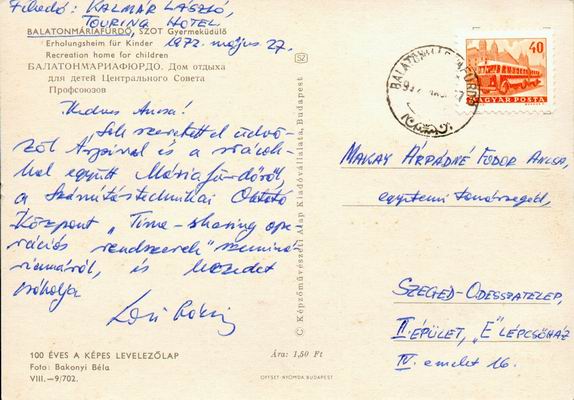 Feladó: KALMÁR LÁSZLÓ,
TOURING HOTEL
BALATONMÁRIAFÜRDŐ, SZOT Gyermeküdülő
1972. május 27.
Erholungsheim für Kinder
Recreation home for children
БАЛАТОНМАРИАФЮРДО. Дом отдыха
для детей Центрального Совета
Профсоюзов
Kedves Ancsa!
Sok szeretettel üdvö-
zöl Árpival és a srácok-
kal együtt Máriafürdőről,
a Számítástechnikai Oktató
Központ „Time-sharing ope-
rációs rendszerek" szeminá-
riumáról, és kezedet
csókolja
Laci bácsi
100 ÉVES A KÉPES LEVELEZŐLAP
Foto: Bakonyi Béla
VIII.—9/702.
Ára: 1,50 Ft
OFFSET-NYOMDA BUDAPEST
© Képzőművészeti Alap Kiadóvállalata, Budapest
SZ
40
MAGYAR POSTA
MAKAY ÁRPÁDNÉ FODOR ANCSA,
egyetemi tanársegéd,
SZEGED-ODESSZATELEP,
II. ÉPÜLET, „E" LÉPCSŐHÁZ
IV. emelet 16.